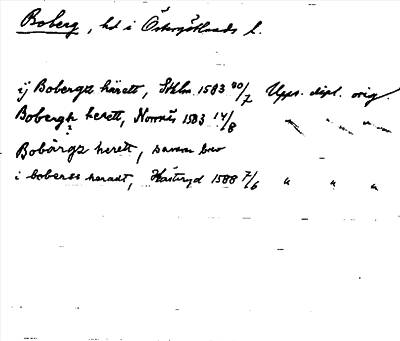 Boberg, hd i Östergötlands l.
ij Bobergz härett, Sthlm 1583 30/7 Upps. dipl. orig.
Bobergh herett, Norrnäs 1583 14/8 " " "
Bobärgz herett, samma brev
i boberss heradt, Hästryd 1588 7/6 " " "